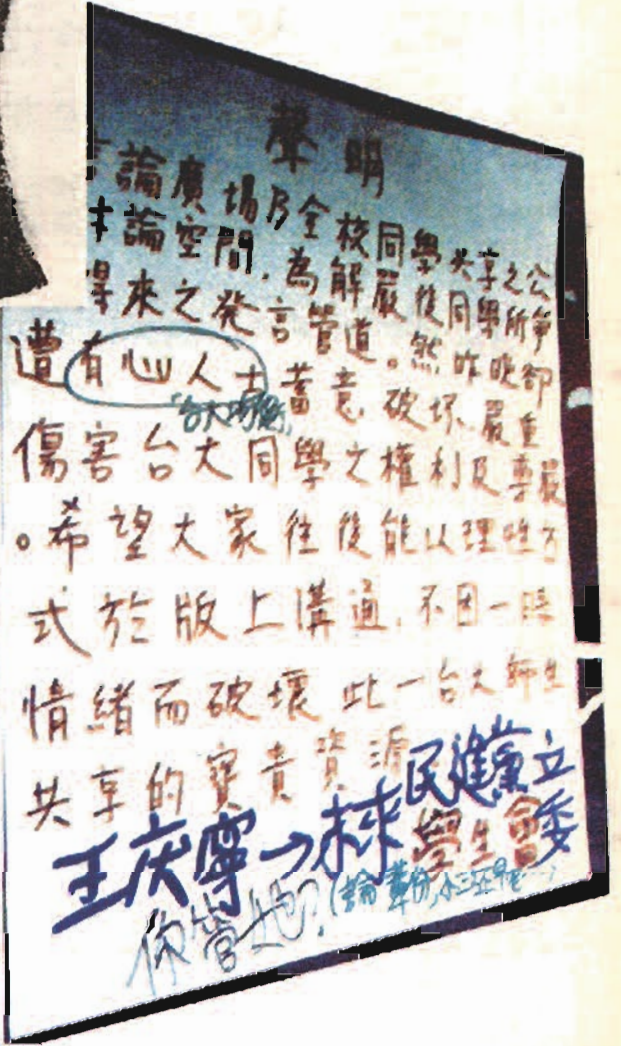 聲明
言論廣場乃全校同學共享之公
論空間,為解嚴後同學所爭
得來之發言管道。然昨晚卻
遭有心人士蓄意破坏、嚴重
傷害台大同學之權利及尊嚴
。希望大家往後能以理性方
式於版上溝通,不因一時
情緒而破壞此一台大師生
共享的寶貴資源
學生會
王庆寧→未來民進黨立委
你管她?